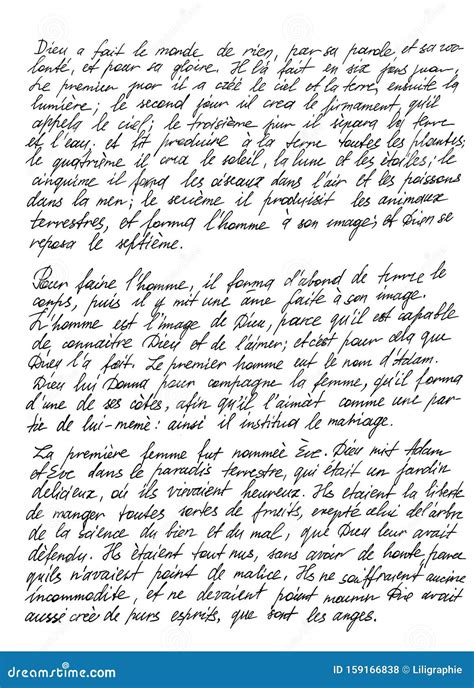 Dieu a fait le monde de rien, par sa parole et sa vo-
lonté, et pour sa gloire. Il l'a fait en six jours
Le premier jour il a créé le ciel et la terre, ensuite la
lumière; le second jour il crea le firmament, qu'il
appela le ciel; le troisième jour il sépara la terre
et l'eau. et fit produire à la terre toutes les plantes;
le quatrième il crea le soleil, la lune et les étoiles; le
cinquième il forma les oiseaux dans l'air et les poissons
dans la mer; le sixième il produisit les animaux
terrestres, et forma l'homme à son image; et Dieu se
reposa le septième.
Pour faire l'homme, il forma d'abord de terre le
corps, puis il y mit une ame faite à son image.
L'homme est l'image de Dieu, parce qu'il est capable
de connaitre Dieu et de l'aimer; et c'est pour cela que
Dieu l'a fait. Le premier homme eut le nom d'Adam.
Dieu lui Donna pour compagne la femme, qu'il forma
d'une de ses côtes, afin qu'il l'aimât comme une par-
tie de lui-meme: ainsi il institua le mariage.
La première femme fut nommée Ève. Dieu mit Adam
et Eve dans le paradis terrestre, qui était un jardin
délicieux, où ils vivaient heureux. Ils étaient la liberte
de manger toutes sortes de fruits, exepté celui de l'arbre
de la science du bien et du mal, que Dieu leur avait
défendu. Ils étaient tout nus, sans avoir de honte, parce
qu'ils n'avaient point de malice. Ils ne souffraient aucune
incommodite, et ne devaient point mourir Dieu avait
aussi créé de purs esprits, que sont les anges.
dreamstime.com
ID 159166838 © Liligraphie